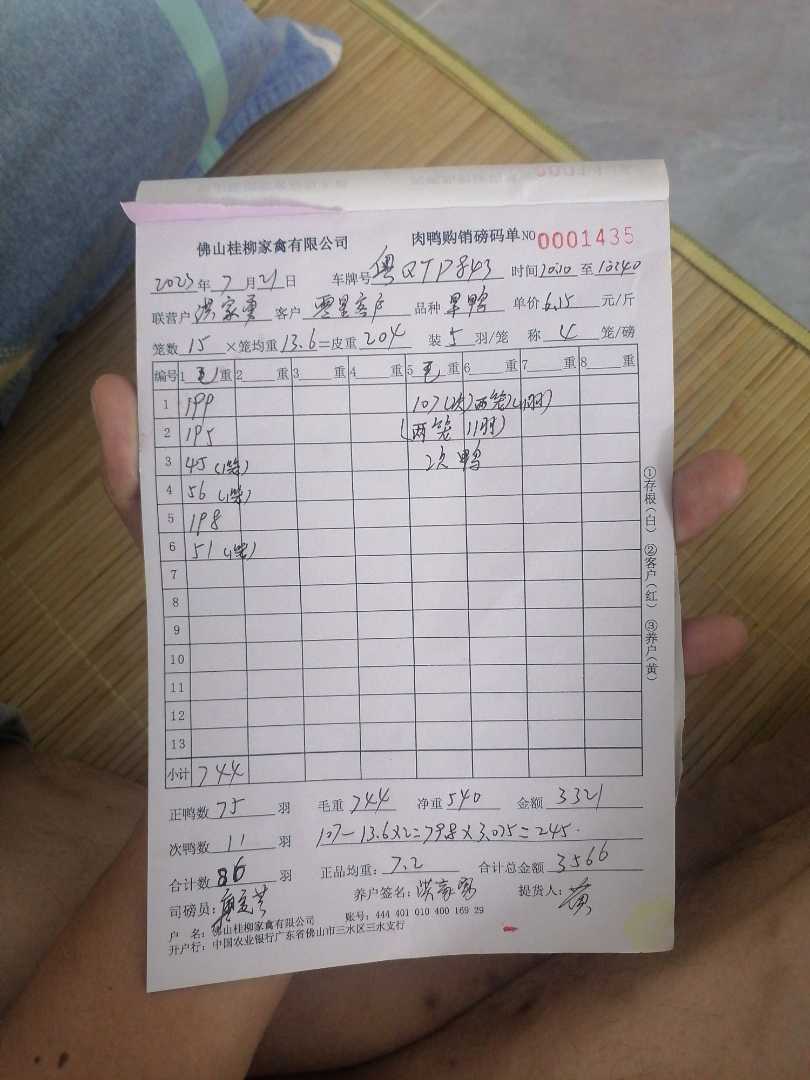 佛山桂柳家禽有限公司 肉鸭购销磅码单 NO 0001435
2023年7月21日 车牌号 粤QTP843 时间 10:10 至 10:40
联营户 洪家勇 客户 零星客户 品种 单价 6.15 元/斤
笼数 15 ×笼均重 13.6 =皮重 204 装 5 羽/笼 称 4 笼/磅
编号 1 毛 重 2 重 3 重 4 重 5 毛 重 6 重 7 重 8 重
1 199 107(次)两笼(11羽)
2 195 (两笼 11羽)
3 45(1笼) 次鸭
4 56(1笼)
5 198
6 51(1笼)
7
8
9
10
11
12
13
小计 744
正鸭数 75 羽 毛重 744 净重 540 金额 3321
次鸭数 11 羽 107-13.6×2=79.8×3.075=245.
合计数 86 羽 正品均重: 7.2 合计总金额 3566
司磅员: 养户签名: 洪家勇 提货人: 黄
户 名: 佛山桂柳家禽有限公司 账号: 444 401 010 400 169 29
开户行: 中国农业银行广东省佛山市三水区三水支行
①存根(白) ②客户(红) ③养户(黄)